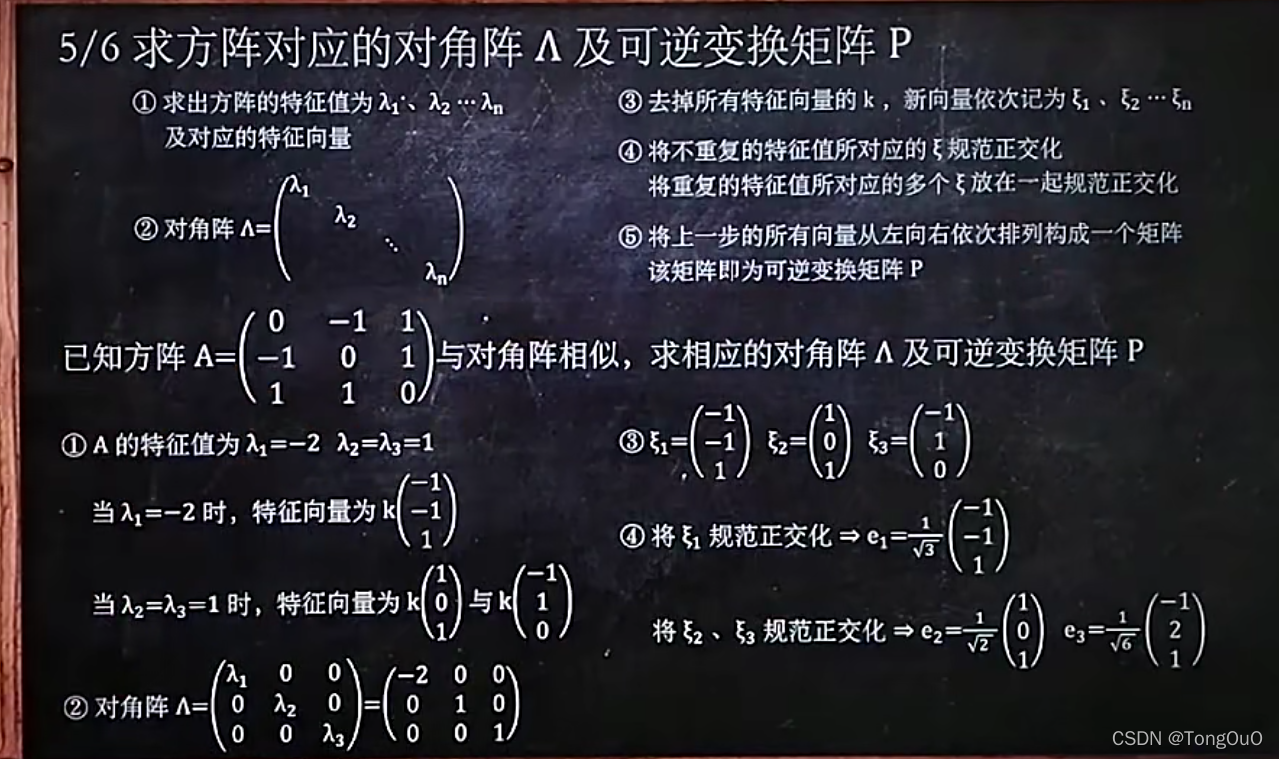 5/6 求方阵对应的对角阵 Λ 及可逆变换矩阵 P
① 求出方阵的特征值为 λ₁、λ₂ ⋯ λₙ
及对应的特征向量
② 对角阵 Λ=
λ₁
λ₂
⋱
λₙ
③ 去掉所有特征向量的 k ，新向量依次记为 ξ₁ 、ξ₂ ⋯ ξₙ
④ 将不重复的特征值所对应的 ξ 规范正交化
将重复的特征值所对应的多个 ξ 放在一起规范正交化
⑤ 将上一步的所有向量从左向右依次排列构成一个矩阵
该矩阵即为可逆变换矩阵 P
已知方阵 A=(0 −1 1; −1 0 1; 1 1 0)与对角阵相似，求相应的对角阵 Λ 及可逆变换矩阵 P
① A 的特征值为 λ₁=−2 λ₂=λ₃=1
当 λ₁=−2 时，特征向量为 k(−1; −1; 1)
当 λ₂=λ₃=1 时，特征向量为 k(1; 0; 1) 与 k(−1; 1; 0)
② 对角阵 Λ=(λ₁ 0 0; 0 λ₂ 0; 0 0 λ₃)=(−2 0 0; 0 1 0; 0 0 1)
③ ξ₁=(−1; −1; 1) ξ₂=(1; 0; 1) ξ₃=(−1; 1; 0)
④ 将 ξ₁ 规范正交化 ⇒ e₁=1/√3 (−1; −1; 1)
将 ξ₂ 、ξ₃ 规范正交化 ⇒ e₂=1/√2 (1; 0; 1) e₃=1/√6 (−1; 2; 1)
CSDN @TongOuO